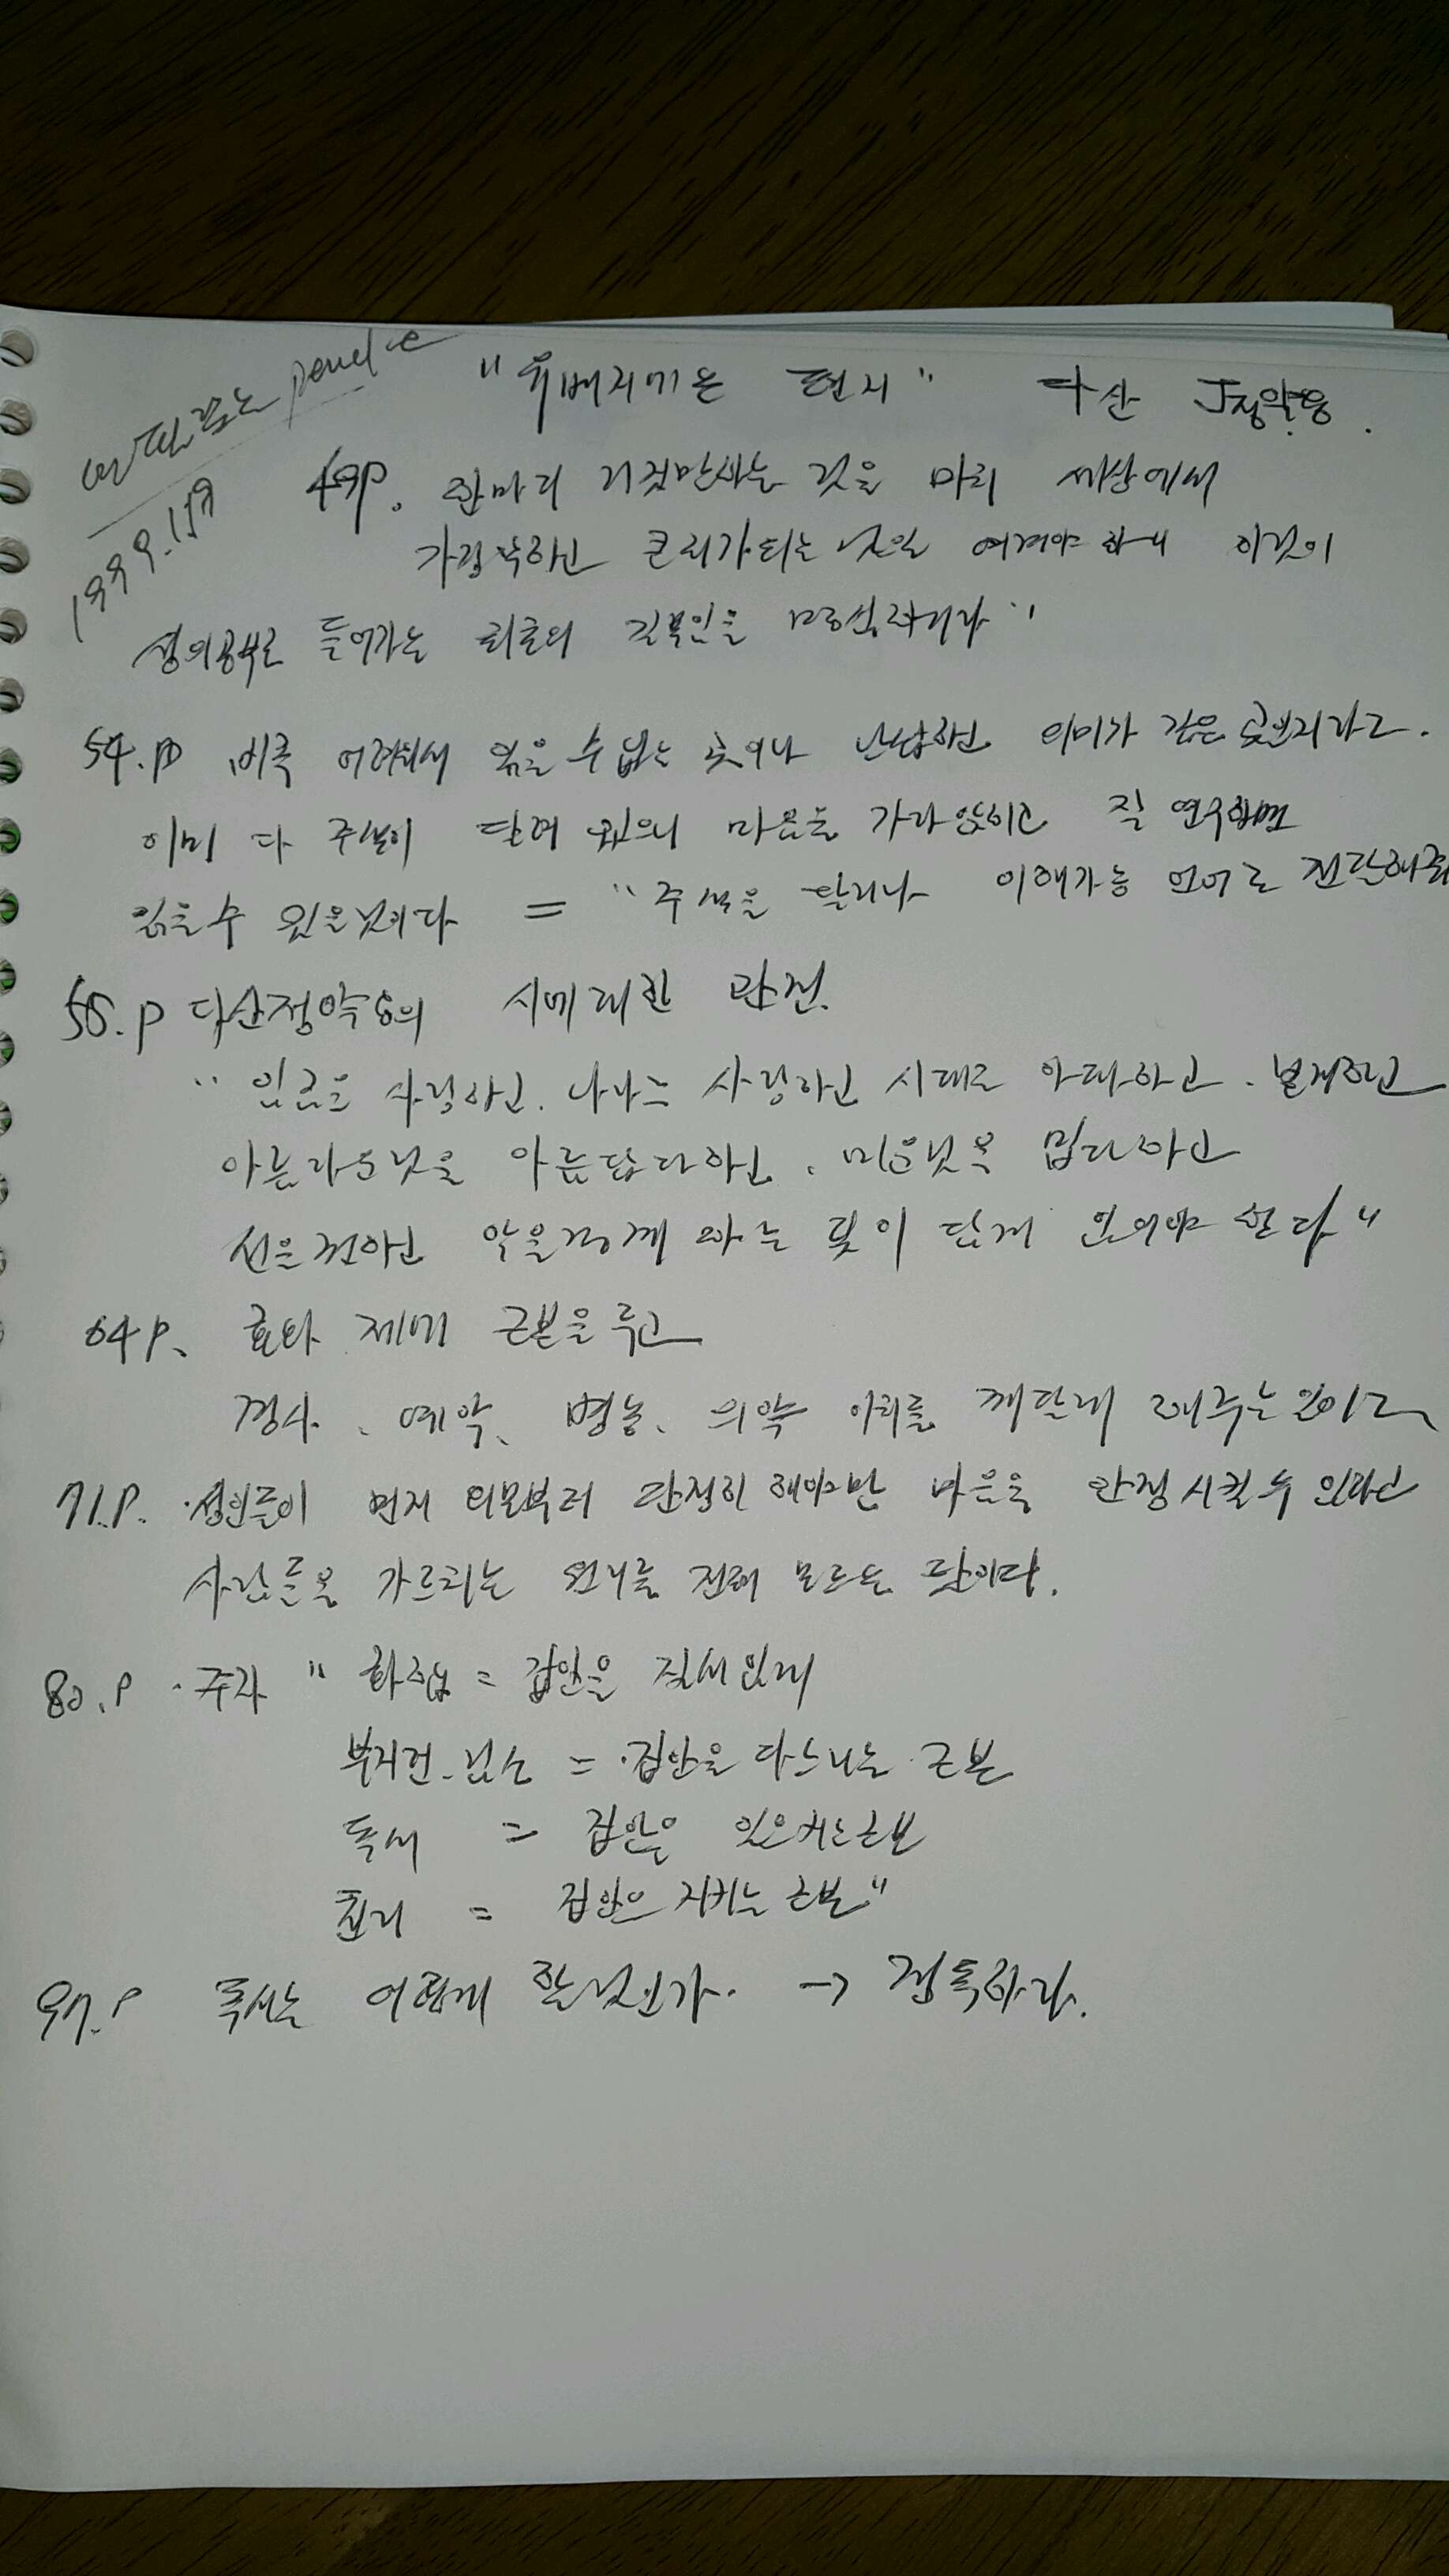 "유배지에온 편지" 다산 정약용.
1999.
49p. 한마디 거짓말하는 것을 마치 세상에서
가장 악하고 큰 죄가되는 것으로 여겨야 하니 이것이
성의공부로 들어가는 최초의 길목임을 명심하거라"
54.p 비록 어려워서 읽을 수 없는 곳이나 난삽하고 의미가 깊은 곳일지라도.
이미 다 주석이 달려 있으니 마음을 가라앉히고 잘 연구하면
읽을 수 있을것이다 = "주석을 달리나 이해가능 언어로 전달해줘
58.p 다산정약용의 시에대한 관점.
"임금을 사랑하고. 나라는 사랑하고 시대를 아파하고.
아름다운것을 아름답다하고. 미운것을 밉다하고
선은 권하고 악을 징계 하는 뜻이 담겨 있어야 한다"
64P. 효와 제에 근본을 두고
경사、예악、병농、의약 이치를 깨닫게
71.P. 성인들이 먼저 외모부터 단정히 해야만 마음을 안정시킬 수 있다고
사람들을 가르치는 원리를 전혀 모르는 탓이다.
80.p · 주자 " 화합 = 집안을 질서있게
부지런 검소 = 집안을 다스리는 근본
독서 = 집안을 일으키는근본
순리 = 집안으 지키는 근본"
97.P 독서는 어떻게 할것인가. → 정독하라.